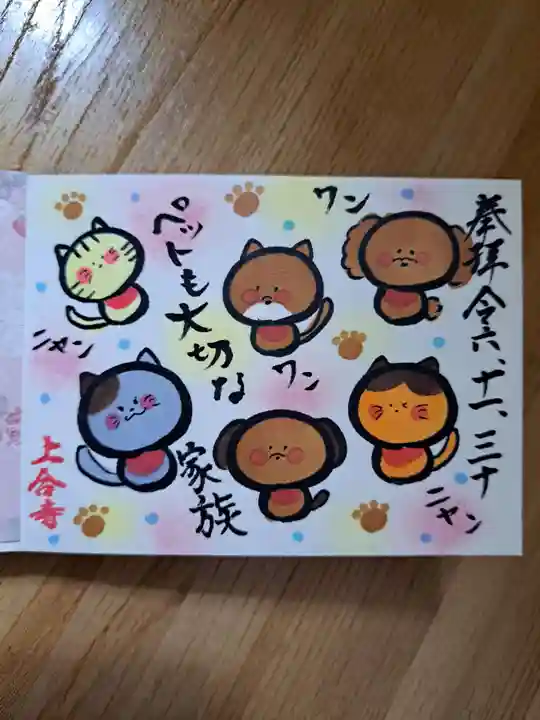 奉拝 令六、十一、三十
ワン
ペットも大切な
家族
ニャン
ワン
ニャン
上合寺